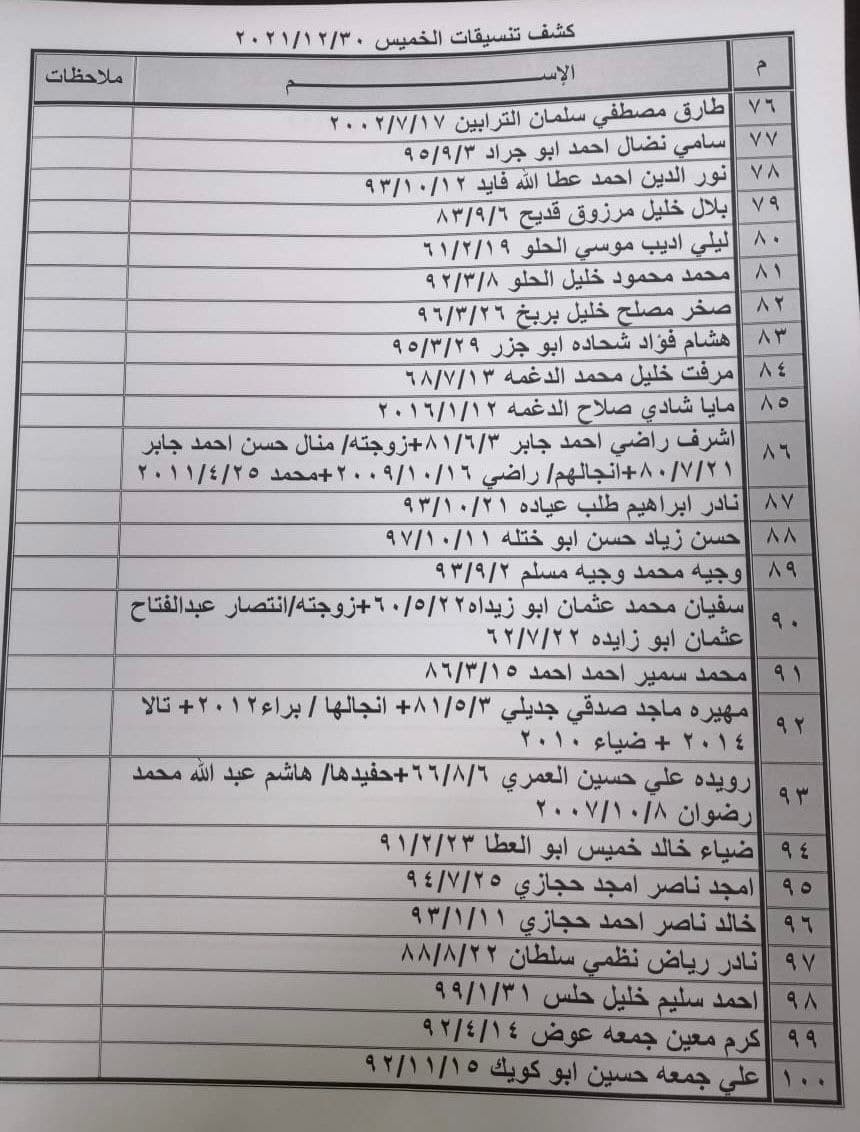 كشف تنسيقات الخميس ٢٠٢١/١٢/٣٠
م الإســـــــــــم ملاحظات
٧٦ طارق مصطفي سلمان الترابين ٢٠٠٢/٧/١٧
٧٧ سامي نضال احمد ابو جراد ٩٥/٩/٣
٧٨ نور الدين احمد عطا الله فايد ٩٣/١٠/١٢
٧٩ بلال خليل مرزوق قديح ٨٣/٩/٦
٨٠ ليلي اديب موسي الحلو ٦١/٢/١٩
٨١ محمد محمود خليل الحلو ٩٢/٣/٨
٨٢ صخر مصلح خليل بربخ ٩٦/٣/٢٦
٨٣ هشام فؤاد شحاده ابو جزر ٩٥/٣/٢٩
٨٤ مرفت خليل محمد الدغمه ٦٨/٧/١٣
٨٥ مايا شادي صلاح الدغمه ٢٠١٦/١/١٢
٨٦ اشرف راضي احمد جابر ٨١/٦/٣+زوجته/ منال حسن احمد جابر
٨٠/٧/٢١+انجالهم/ راضي ٢٠٠٩/١٠/١٦+محمد ٢٠١١/٤/٢٥
٨٧ نادر ابراهيم طلب عياده ٩٣/١٠/٢١
٨٨ حسن زياد حسن ابو ختله ٩٧/١٠/١١
٨٩ وجيه محمد وجيه مسلم ٩٣/٩/٢
٩٠ سفيان محمد عثمان ابو زيداه٦٠/٥/٢٢+زوجته/انتصار عبدالفتاح
عثمان ابو زايده ٦٢/٧/٢٢
٩١ محمد سمير احمد احمد ٨٦/٣/١٥
٩٢ مهيره ماجد صدقي جديلي ٨١/٥/٣+ انجالها / براء٢٠١٢+ تالا
٢٠١٤ + ضياء ٢٠١٠
٩٣ رويده علي حسين العمري ٦٦/٨/٦+حفيدها/ هاشم عبد الله محمد
رضوان ٢٠٠٧/١٠/٨
٩٤ ضياء خالد خميس ابو العطا ٩١/٢/٢٣
٩٥ امجد ناصر امجد حجازي ٩٤/٧/٢٥
٩٦ خالد ناصر احمد حجازي ٩٣/١/١١
٩٧ نادر رياض نظمي سلطان ٨٨/٨/٢٢
٩٨ احمد سليم خليل حلس ٩٩/١/٣١
٩٩ كرم معين جمعه عوض ٩٢/٤/١٤
١٠٠ علي جمعه حسين ابو كويك ٩٢/١١/١٥